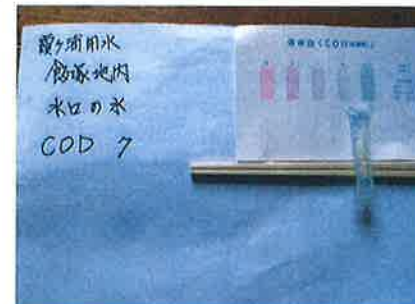 霞ヶ浦用水
飯塚地内
水口の水
COD 7